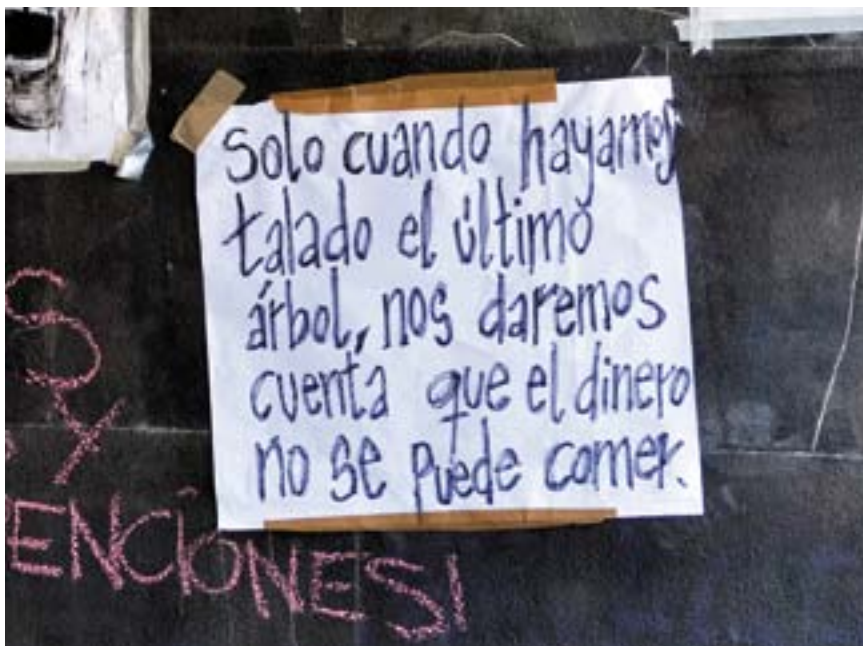 Solo cuando hayamos
talado el último
árbol, nos daremos
cuenta que el dinero
no se puede comer.
S
Y
ENCIONES!